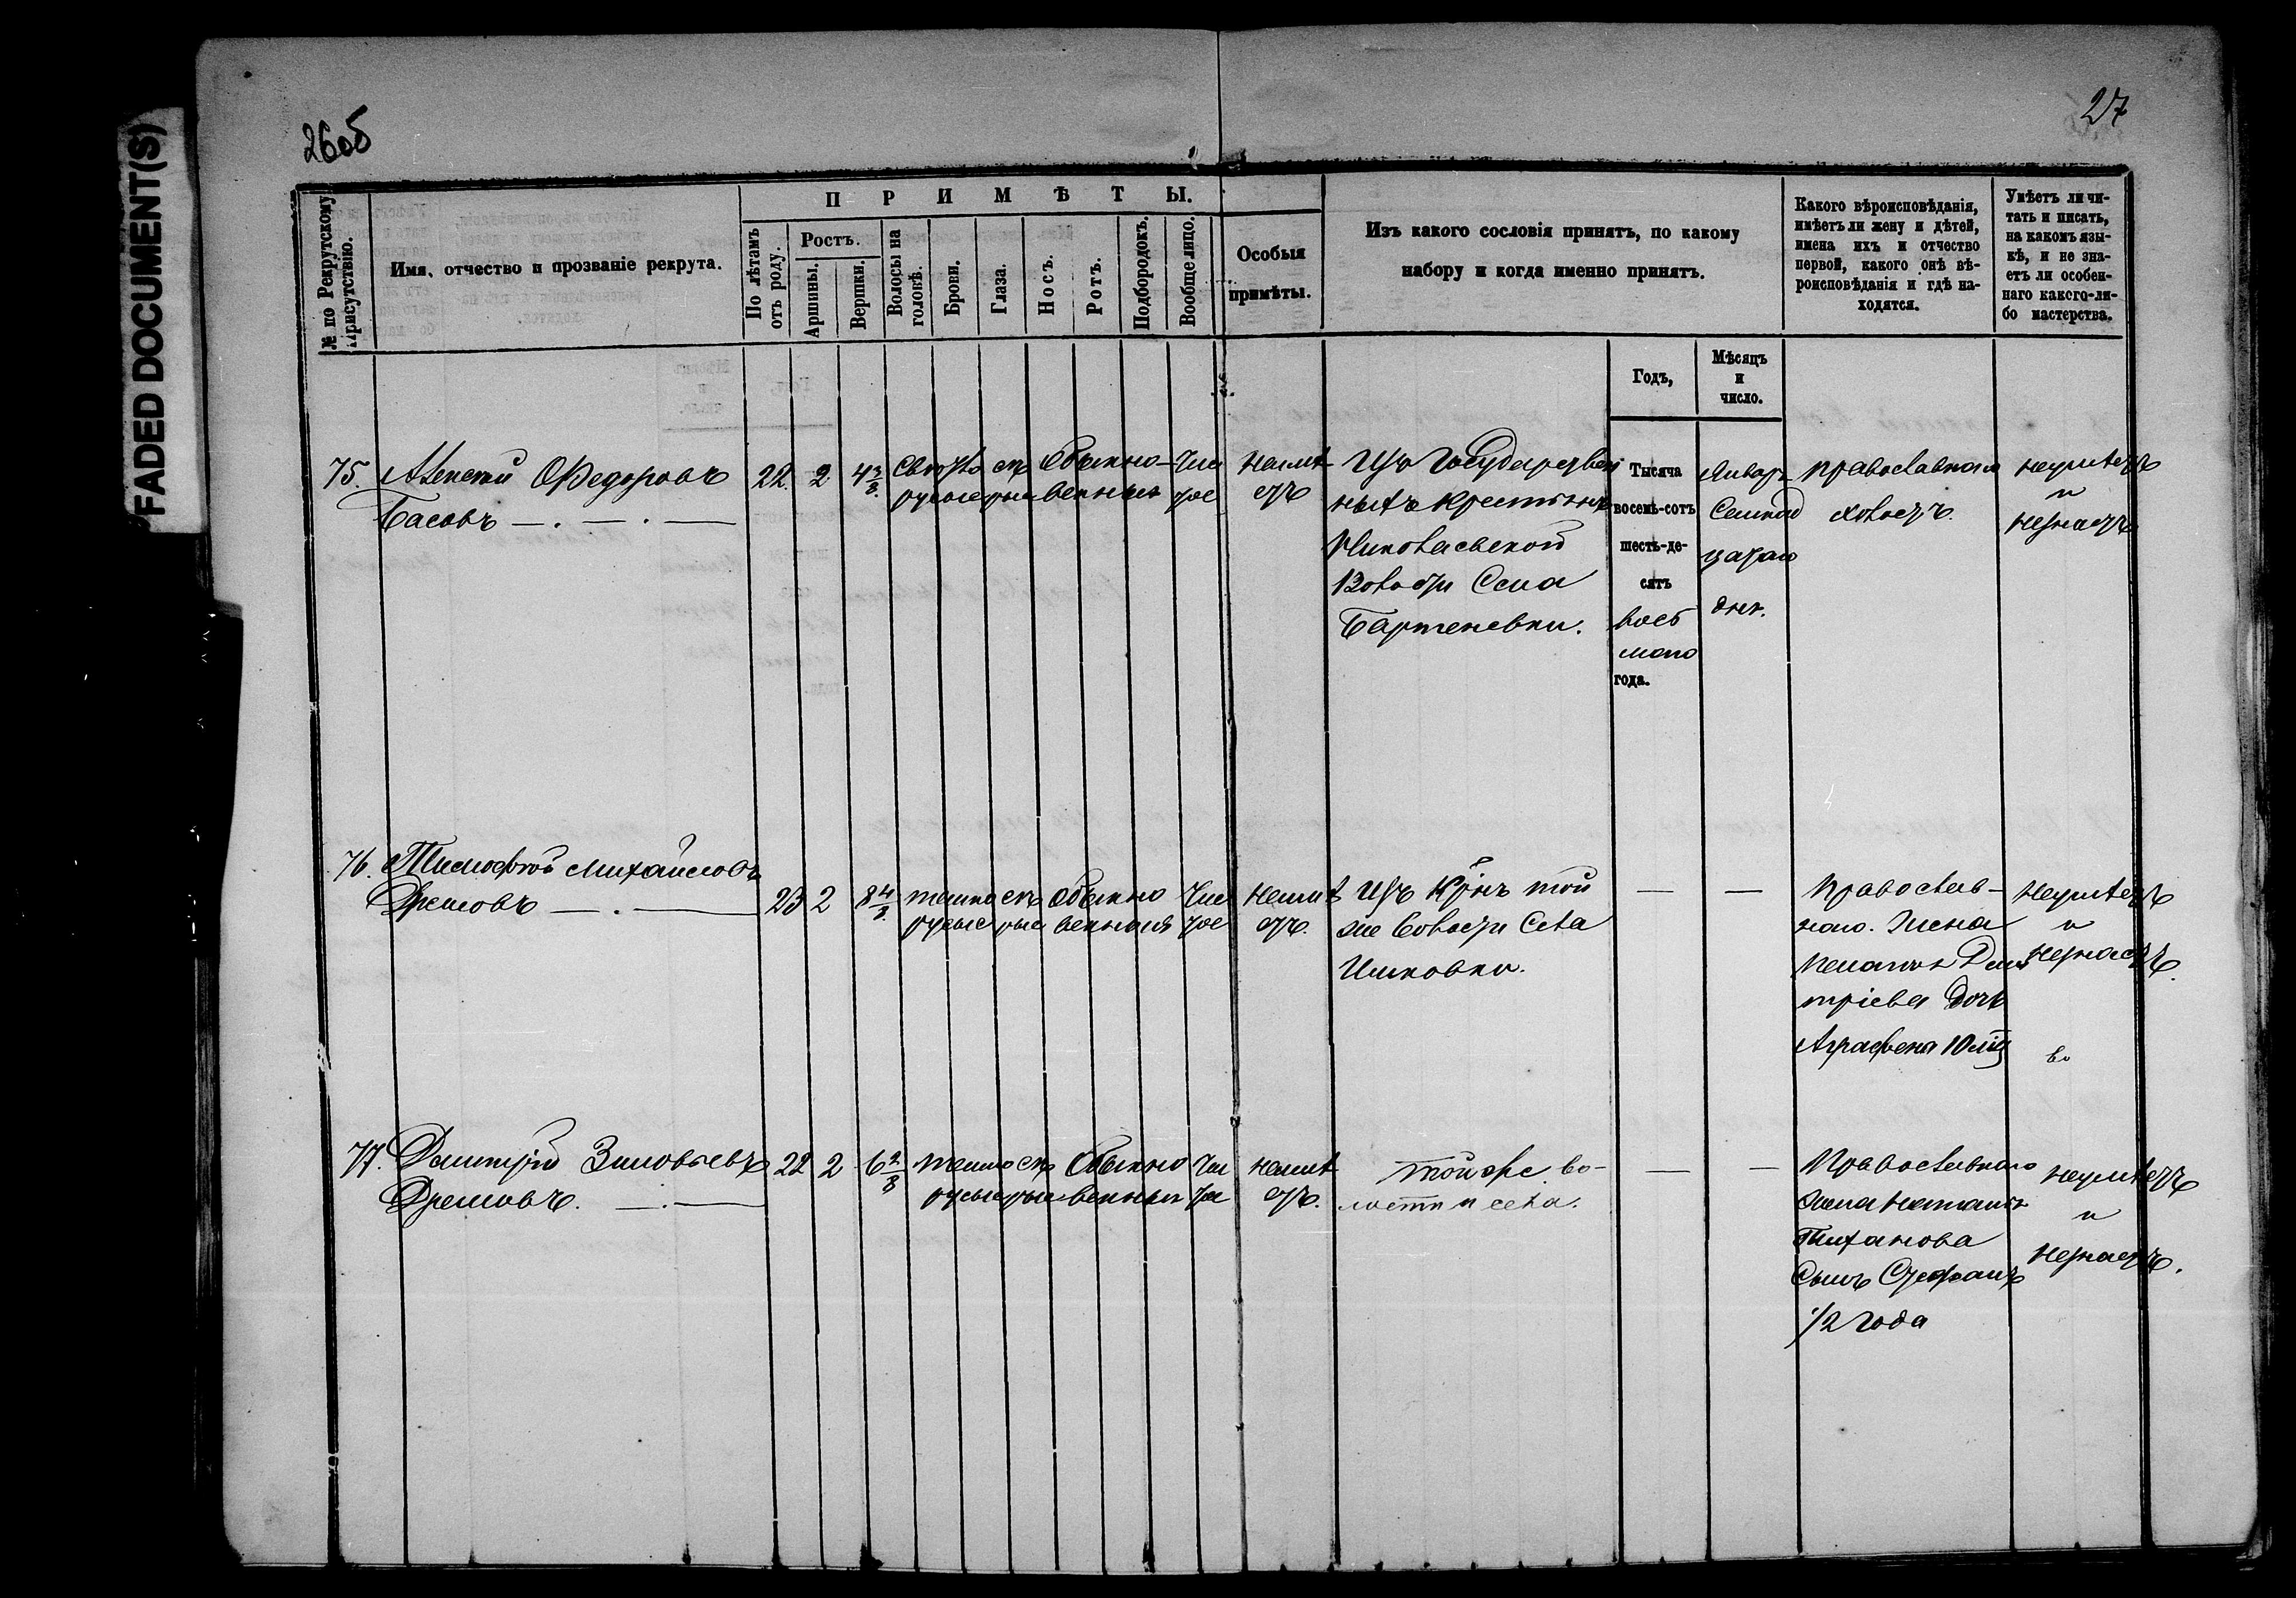 FADED DOCUMENT(S)
26об
27
№ по Рекрутскому Присутствію.
Имя, отчество и прозваніе рекрута.
ПРИМѢТЫ.
По лѣтамъ отъ роду.
Ростъ.
Аршины.
Вершки.
Волосы на головѣ.
Брови.
Глаза.
Носъ.
Ротъ.
Подбородокъ.
Вообще лицо.
Особыя
примѣты.
Изъ какого сословія принятъ, по какому
набору и когда именно принятъ.
Какого вѣроисповѣданія,
имѣетъ ли жену и дѣтей,
имена ихъ и отчество
первой, какого онѣ вѣ-
роисповѣданія и гдѣ на-
ходятся.
Умѣетъ ли чи-
тать и писать,
на какомъ язы-
кѣ, и не зна-
етъ ли особен-
наго какого-ли-
бо мастерства.
Годъ,
Мѣсяцъ
и
число.
75. Алексѣй Федоровъ
Басовъ
22. 2 4 3/8.
свѣтло сѣ Обыкно- Чис
русые рые венныя тое
неимѣ
етъ
Изъ Государствен
ныхъ крестьянъ
Николаевской
Волости Села
Бартеневки.
Тысяча
восемь-сотъ
шесть-де-
сятъ
вось
маго
года.
Январь
Семнад
цатаго
дня.
православнаго
холостъ.
неумѣетъ
и
незнаетъ
76. Тимофѣй Михайловъ
Дремовъ
23 2 8 4/8
темно сѣ Обыкно Чис
русые рые венныя тое
неимѣ
етъ.
Изъ Крнъ той
же Волости Села
Ишковки.
Православ-
наго. Жена
Меланья Дми
тріева дочь
Аграфена 10 мц
неумѣетъ
и
незнаетъ.
77. Дмитрій Зиновьевъ
Дремовъ.
22 2 6 2/8
темно сѣ Обыкно Чи
русые рые венныя
неимѣ
етъ.
той же во-
лости и села.
Православнаго
жена Наталья
Тиханова
Сынъ Стефанъ
1/2 года
неумѣетъ
и
незнаетъ.